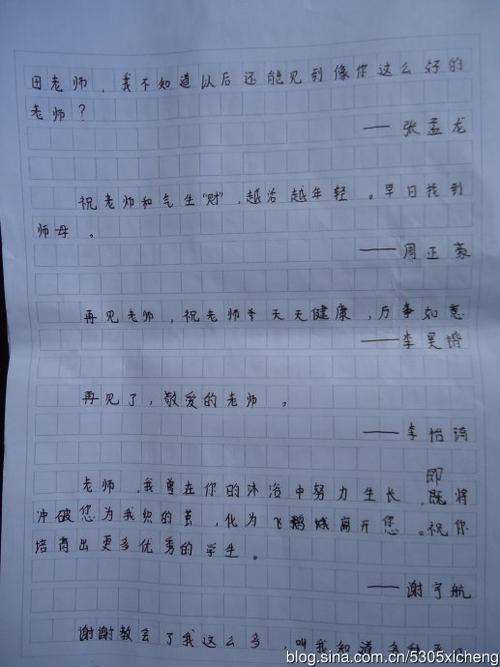 田老师，我不知道以后还能见到像你这么好的
老师？
——张孟龙
祝老师和气生“财”，越活越年轻。早日找到
师母。
——周正豪
再见老师，祝老师天天健康，万事如意
——李昊
再见了，敬爱的老师。
——李怡涛
老师，我曾在你的沐浴中努力生长，即将
冲破您为我织的茧，化为飞蛾 离开您。祝你
培育出更多优秀的学生。
——谢宇航
谢谢教会了我这么多 叫我知道
blog.sina.com.cn/5305xicheng